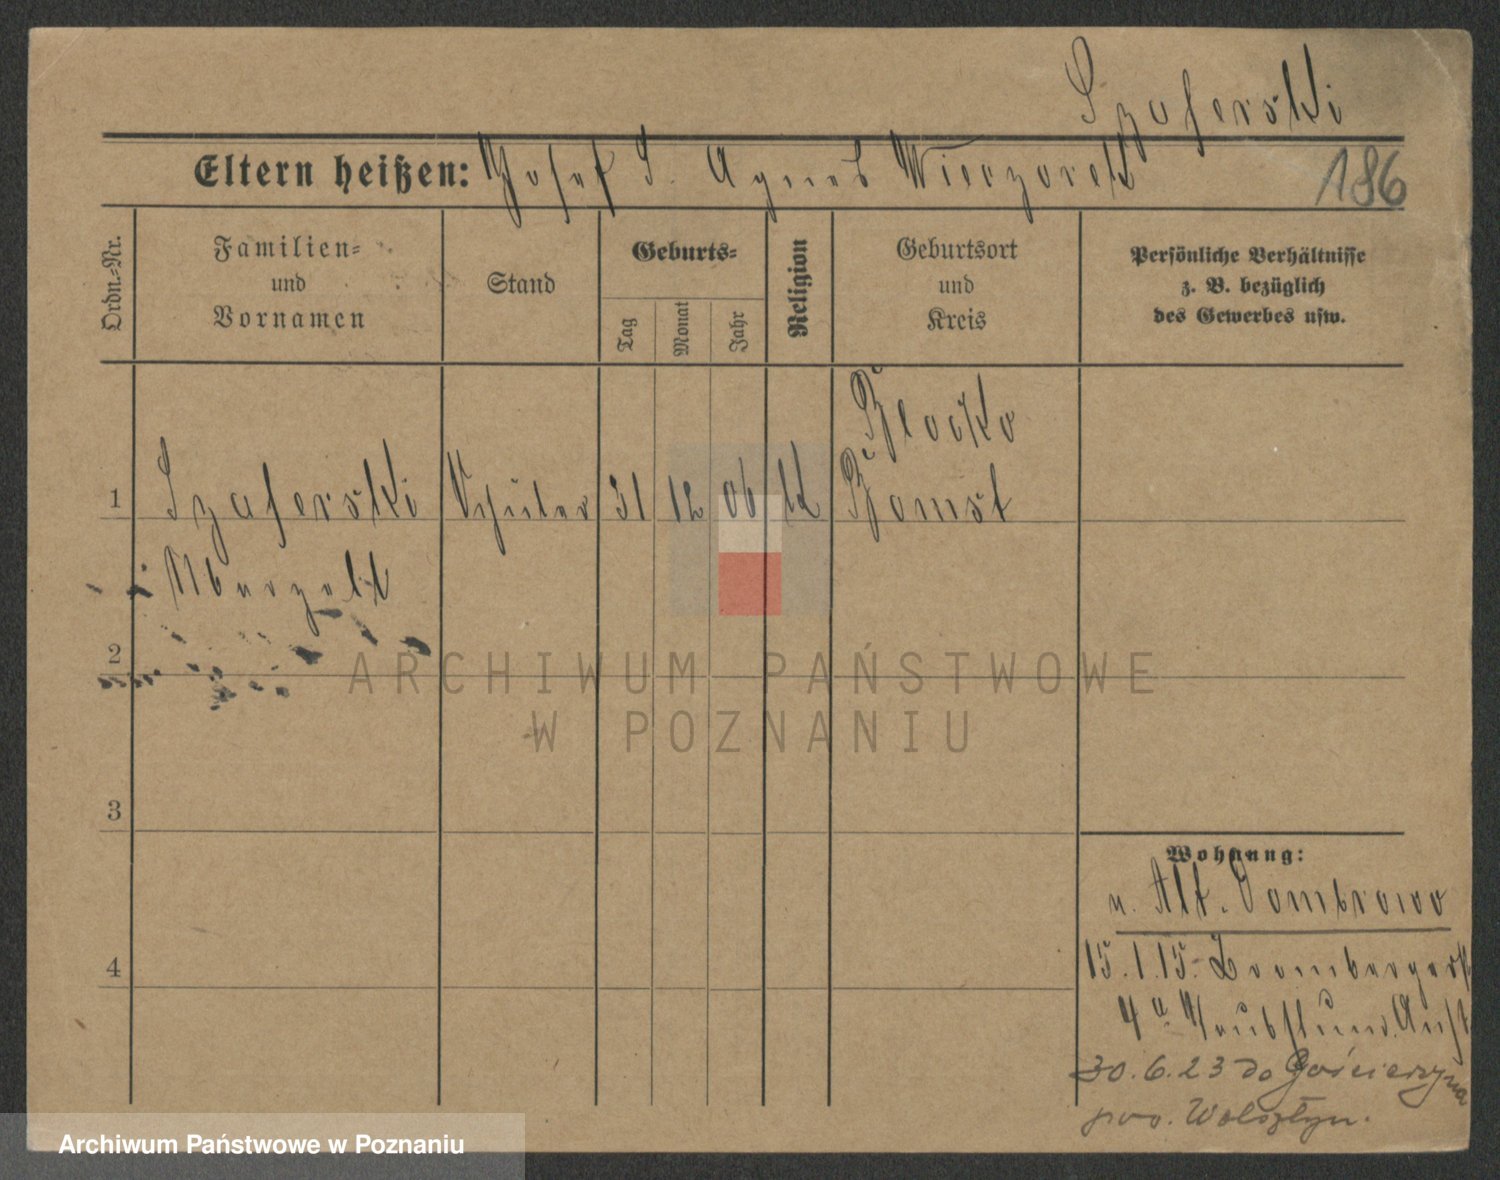 Szaferski
Eltern heißen: Josef S. Agnes Wieczorek
186
Ordn.-Nr.
Familien-
und
Vornamen
Stand
Geburts-
Tag
Monat
Jahr
Religion
Geburtsort
und
Kreis
Persönliche Verhältnisse
z. B. bezüglich
des Gewerbes usw.
Blocko
1 Szaferski Schüler 31 12 06 Bomst
2
3
4
Wohnung:
n. Alt. Dombrowo
15.1.15. Brombergerst.
4a Taubstumm. Anst.
30.6.23 do Gościeszyna
pow. Wolsztyn.
ARCHIWUM PAŃSTWOWE
W POZNANIU
Archiwum Państwowe w Poznaniu